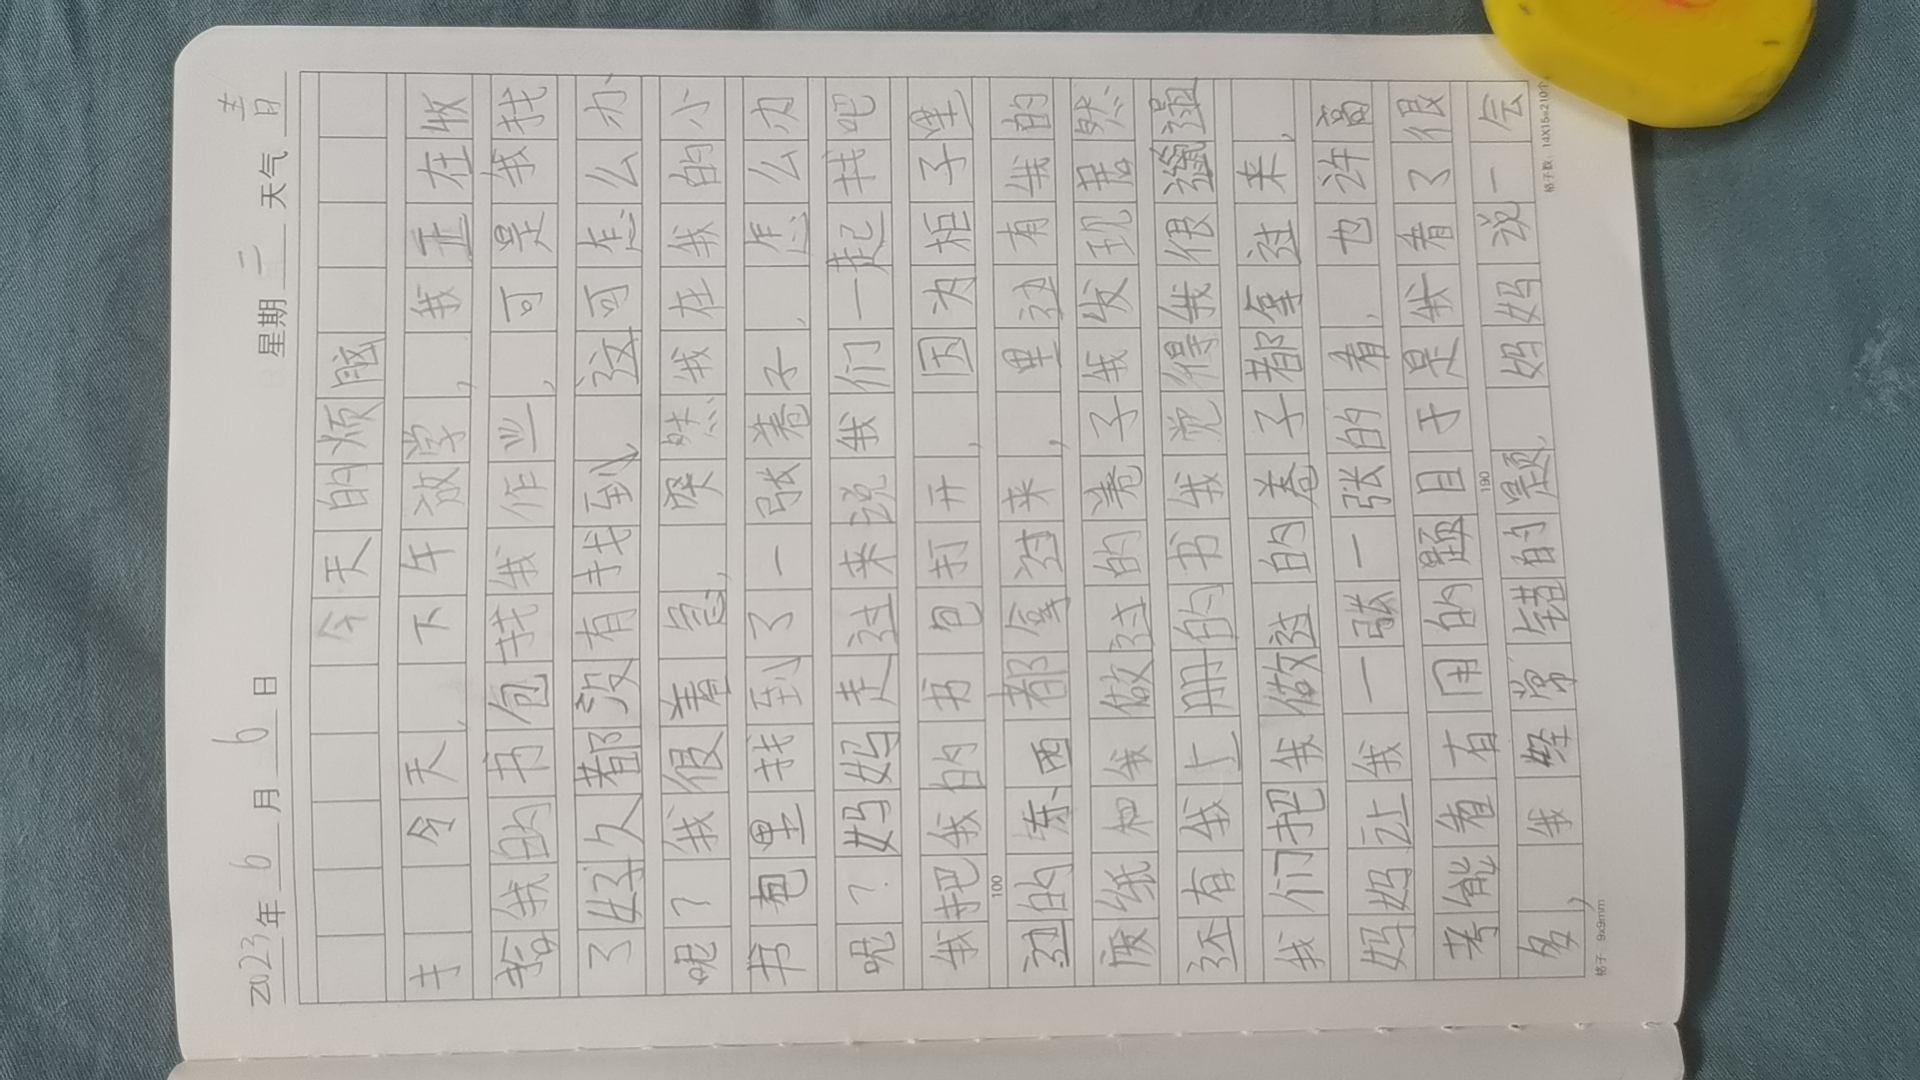 2023年6月6日 星期二 天气
今天的烦脑
今天,下午放学,我正在收
拾我的书包找我作业,可是我找
了好久都没有找到,这可怎么办
呢?我很着急,突然我在我的小
书包里找到了一张卷子,怎么办
呢?妈妈走过来说我们一起找吧
我把我的书包打开,因为柜子里
边的东西都拿过来,里边有我的
废纸和我做过的卷子我发现居然
还有我上册的书我觉得我很邋遢
我们把我做过的卷子都拿过来,
妈妈让我一张一张的看,也许高
考能看有用的题目于是我看了很
多,我经常错的题,妈妈说一会
100
190
格子: 9x9mm
格子数: 14X15=210个